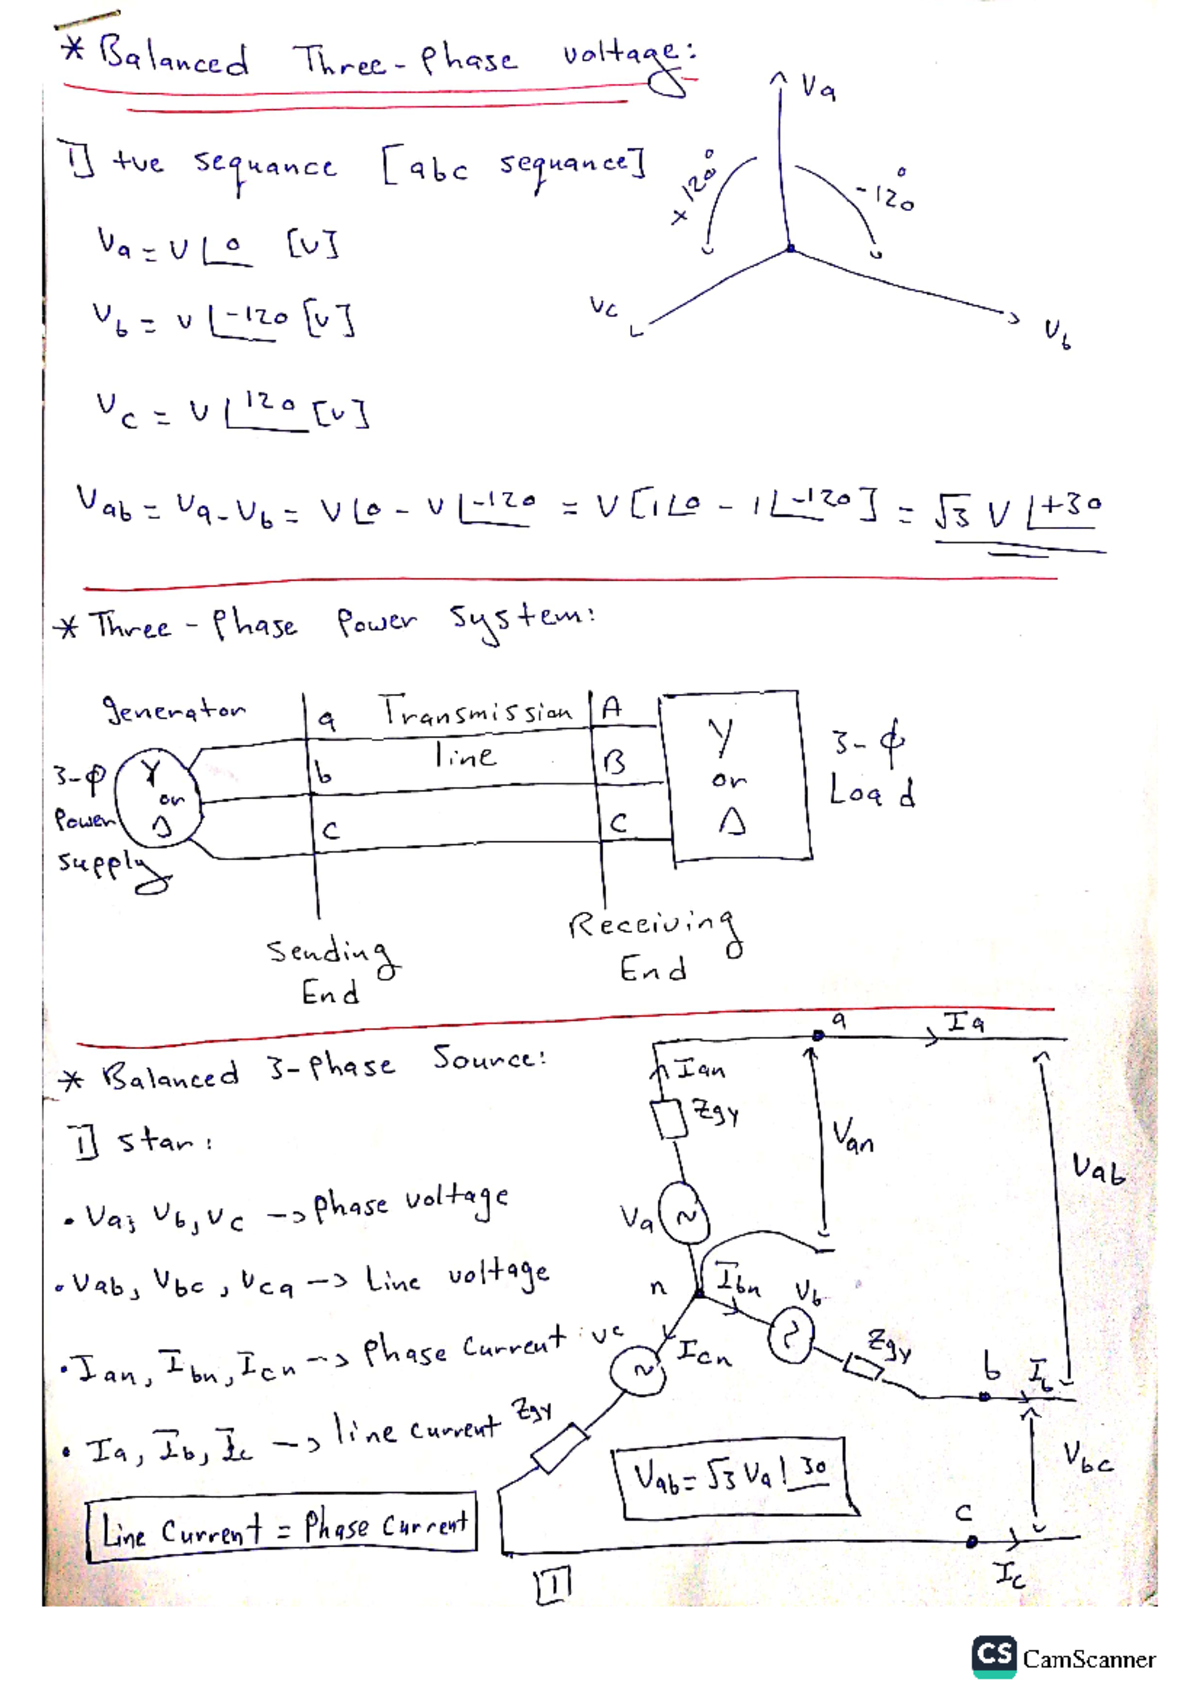 * Balanced Three-Phase voltage:
1] +ve sequance [abc sequance]
Va = V∠0 [V]
Vb = V∠-120 [V]
Vc = V∠120 [V]
Va
+120°
-120°
Vc
Vb
Vab = Va - Vb = V∠0 - V∠-120 = V[1∠0 - 1∠-120] = √3 V∠+30
* Three-Phase Power System:
generator
3-φ
Power
Supply
Y
or
Δ
a
b
c
Transmission
line
A
B
C
Y
or
Δ
3-φ
Load
Sending
End
Receiving
End
* Balanced 3-Phase Source:
1] star:
• Va, Vb, Vc → Phase voltage
• Vab, Vbc, Vca → Line voltage
• Ian, Ibn, Icn → Phase current
• Ia, Ib, Ic → line current
Line Current = Phase Current
a
Ia
Ian
Zgy
Van
Vab
Va
n
Ibn
Vb
Zgy
b
Ib
Vc
Icn
Zgy
Vbc
Vab = √3 Va∠30
c
Ic
1
CS CamScanner